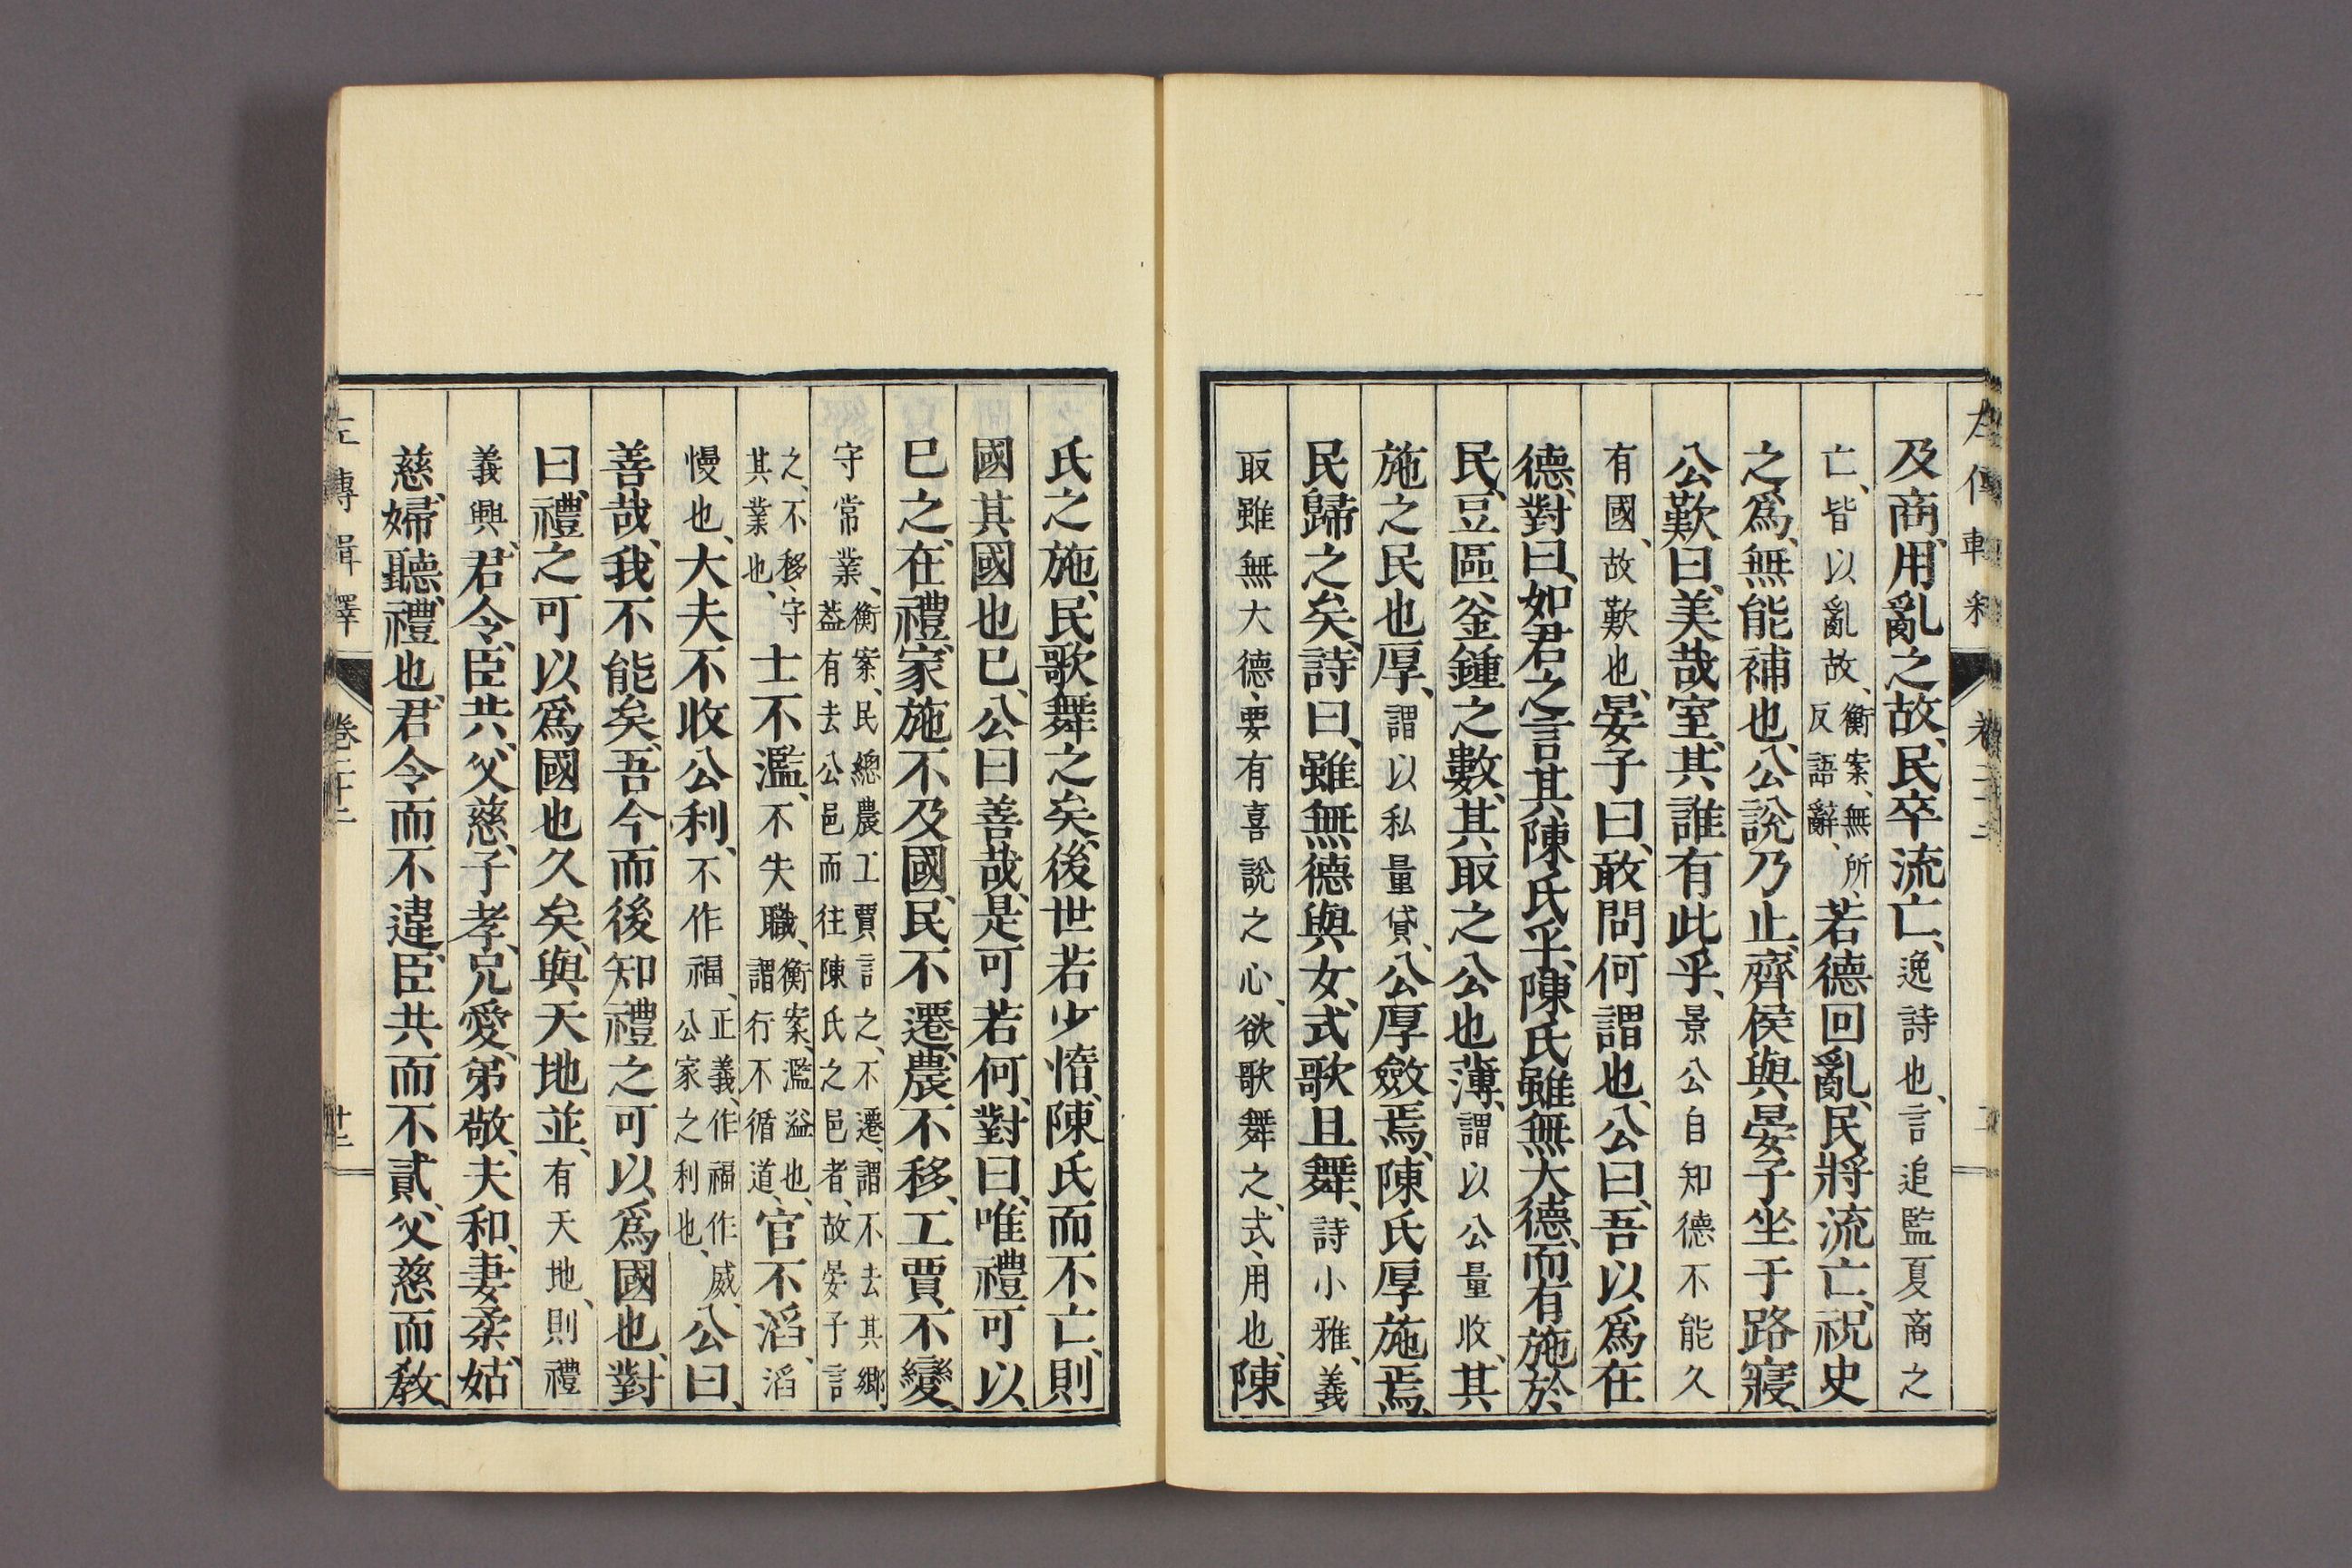 及商、用亂之故、民卒流亡、逸詩也、言追監夏商之
亡、皆以亂故、衡案、無所、反語辭、若德回亂、民將流亡、祝史
之爲、無能補也、公說乃止、齊侯與晏子坐于路寢、
公歎曰、美哉室、其誰有此乎、景公自知德不能久
有國、故歎也、晏子曰、敢問何謂也、公曰、吾以爲在
德、對曰、如君之言、其陳氏乎、陳氏雖無大德、而有施於
民、豆區釜鍾之數、其取之公也薄、謂以公量收、其
施之民也厚、謂以私量貸、公厚斂焉、陳氏厚施焉、
民歸之矣、詩曰、雖無德與女、式歌且舞、詩小雅、義
取雖無大德、要有喜說之心、欲歌舞之、式、用也、陳
氏之施、民歌舞之矣、後世若少惰、陳氏而不亡、則
國其國也已、公曰善哉、是可若何、對曰、唯禮可以
已之、在禮、家施不及國、民不遷、農不移、工賈不變、
守常業、衡案、民總農工賈言之、不遷、謂不去其鄉、葢有去公邑而往陳氏之邑者、故晏子言
之、不移、守其業也、士不濫、不失職、衡案、濫溢也、謂行不循道、官不滔、滔
慢也、大夫不收公利、不作福、正義、作福作威、公家之利也、公曰、
善哉、我不能矣、吾今而後知禮之可以爲國也、對
曰、禮之可以爲國也久矣、與天地並、有天地、則禮
義興、君令、臣共、父慈、子孝、兄愛、弟敬、夫和、妻柔、姑
慈、婦聽、禮也、君令而不違、臣共而不貳、父慈而敎
左傳輯釋 卷二十二 十二